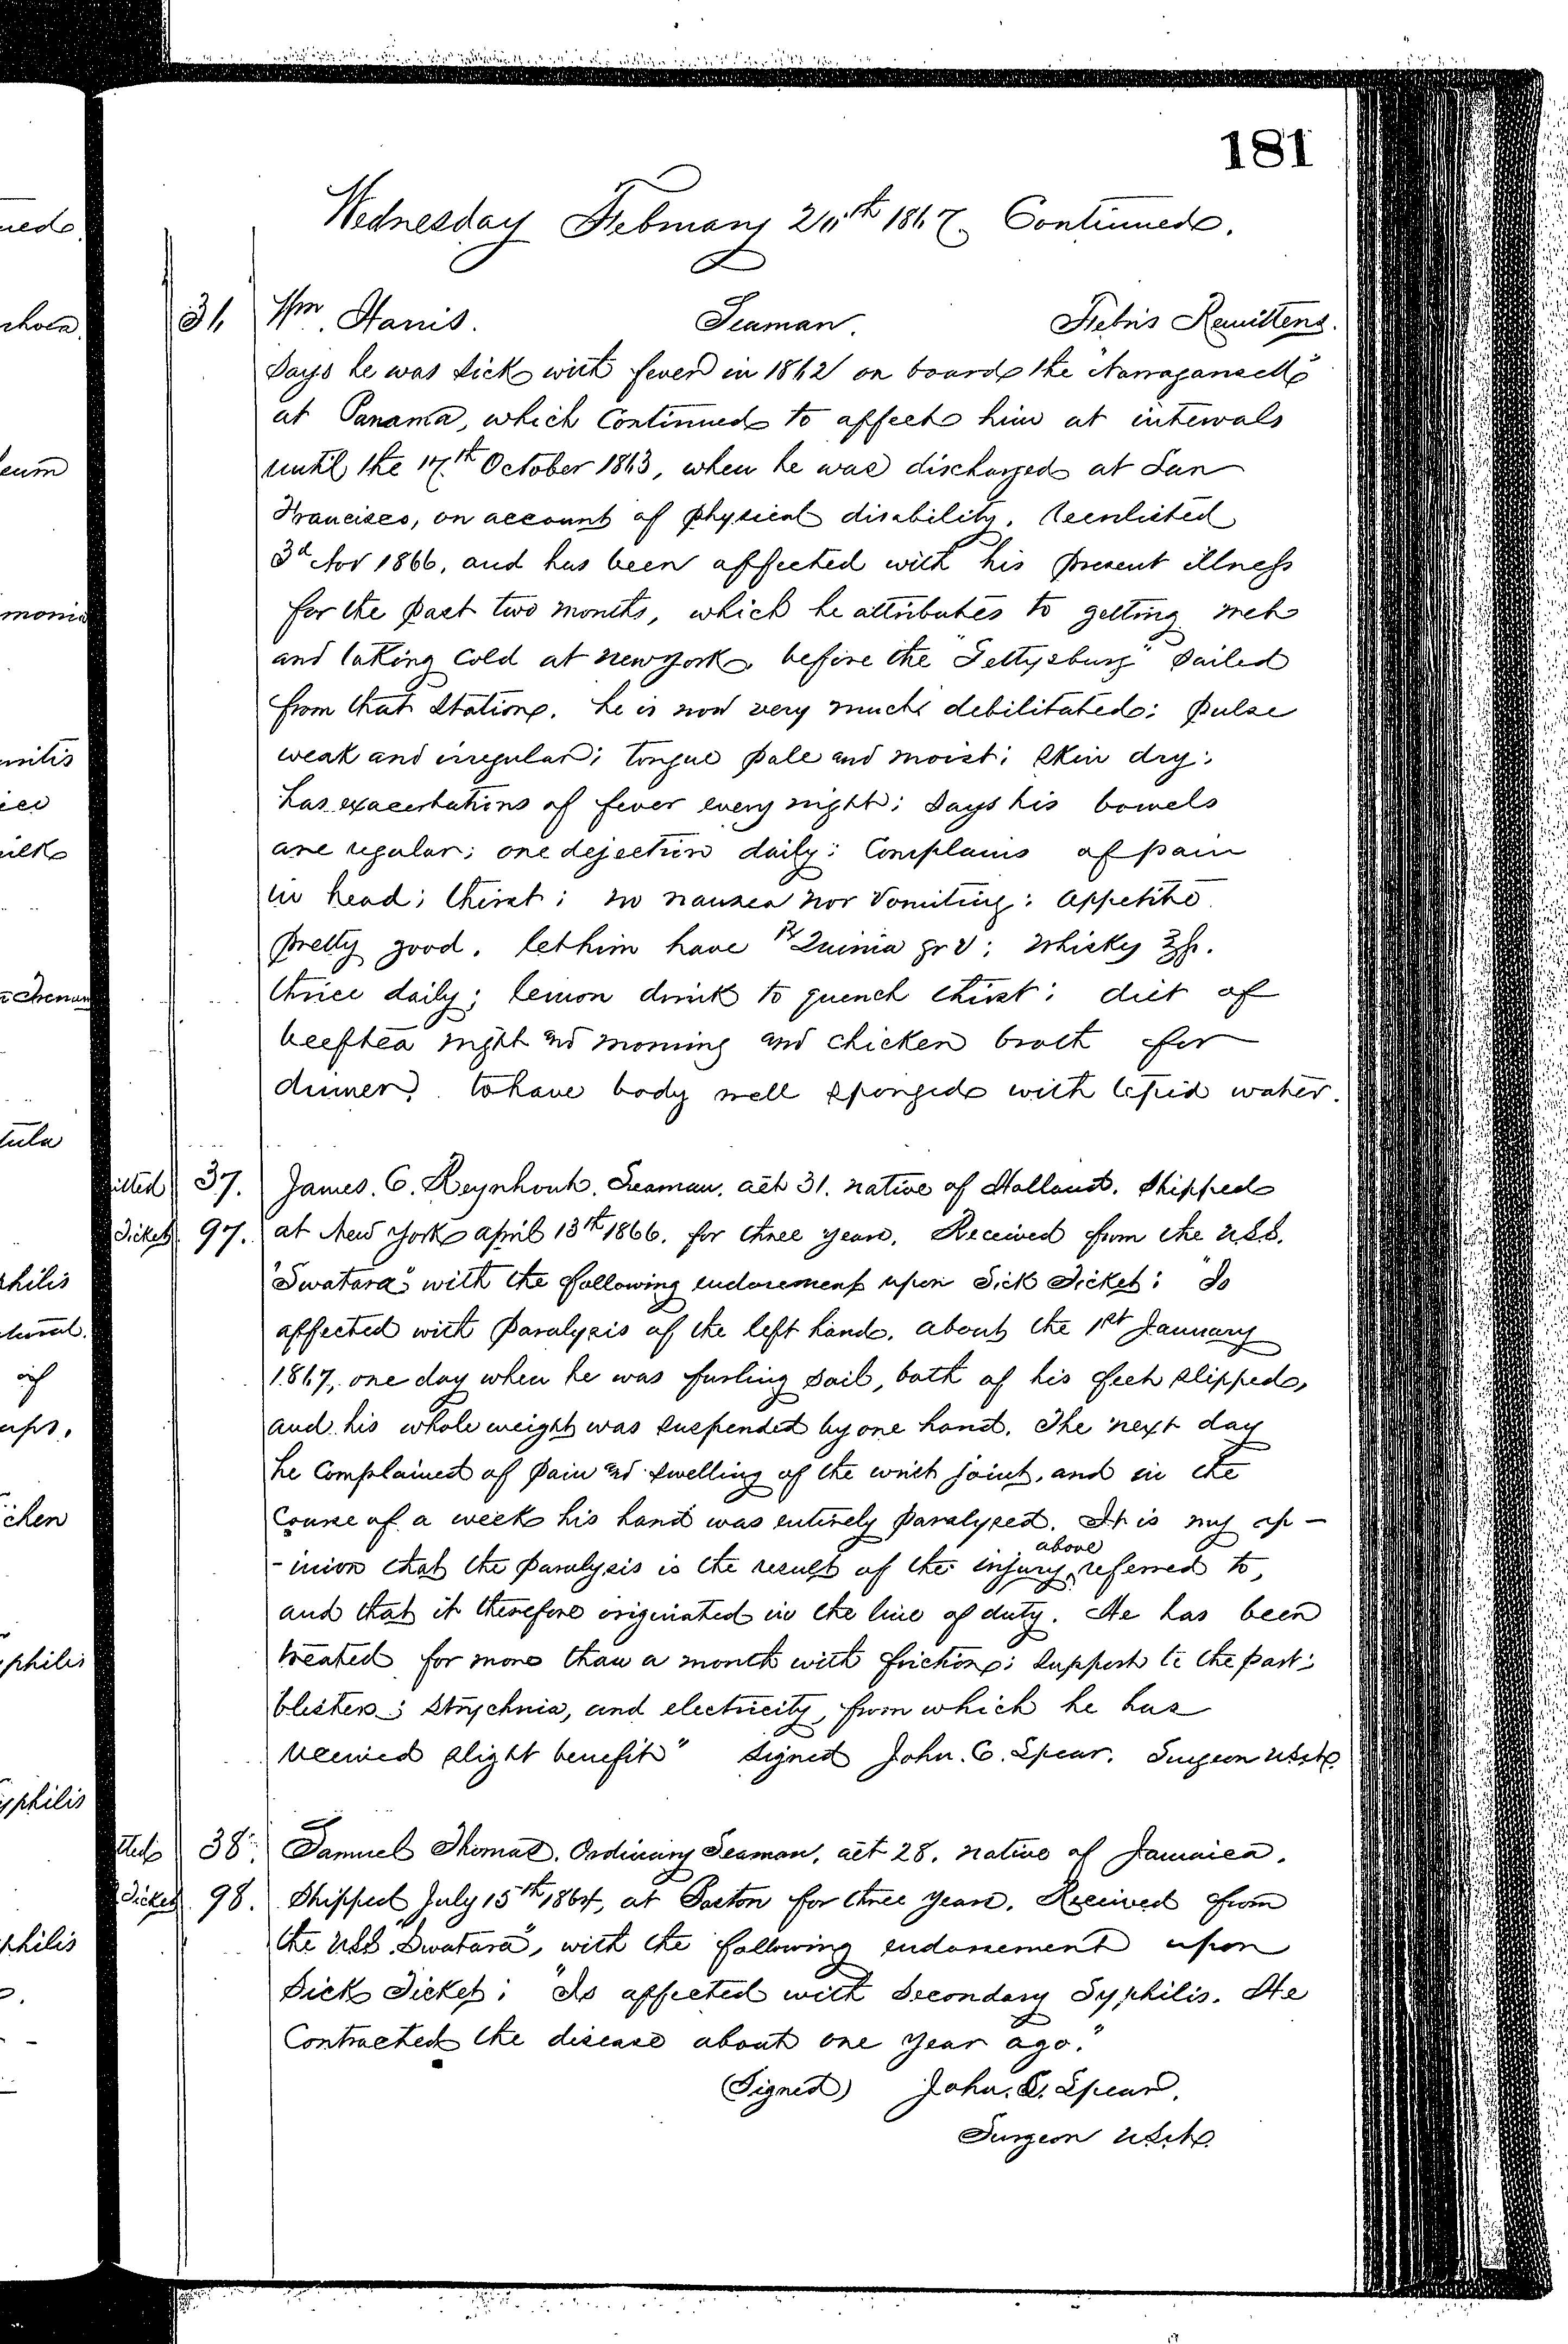 181
Wednesday February 20th 1867. Continued.
31. Wm. Harris. Seaman. Febris Remittens.
Says he was sick with fever in 1862 on board the "Narragansett"
at Panama, which Continued to affect him at intervals
until the 17th October 1863, when he was discharged at San
Francisco, on account of physical disability. Reenlisted
3d Nov 1866, and has been affected with his present illness
for the past two months, which he attributes to getting wet
and taking Cold at New York before the "Gettysburg" sailed
from that Station. he is now very much debilitated: pulse
weak and irregular; tongue pale and moist; skin dry;
has exacerbations of fever every night; says his bowels
are regular; one dejection daily: Complains of pain
in head; thirst; no nausea nor vomiting: appetite
pretty good. let him have ℞ Quinia gr v; whisky ℥ss.
thrice daily; lemon drink to quench thirst: diet of
beeftea night and morning and chicken broth for
dinner. to have body well sponged with tepid water.
itted 37. James. C. Reynhout. Seaman. aet 31. native of Holland. Shipped
Ticket 97. at New York april 13th 1866. for three years. Received from the U.S.S.
"Swatara" with the following endorsement upon Sick Ticket: "Is
affected with Paralysis of the left hand. about the 1st January
1867, one day when he was furling sail, both of his feet slipped,
and his whole weight was suspended by one hand. The next day
he Complained of pain and swelling of the wrist joint, and in the
Course of a week his hand was entirely paralyzed. It is my op-
-inion that the paralysis is the result of the injury above referred to,
and that it therefore originated in the line of duty. He has been
treated for more than a month with friction; support to the part;
blisters; Strychnia, and electricity, from which he has
received slight benefit" Signed John. C. Spear. Surgeon USN.
tted 38. Samuel Thomas. Ordinary Seaman. aet 28. native of Jamaica.
Ticket 98. Shipped July 15th 1864, at Boston for three years. Received from
the USS "Swatara", with the following endorsement upon
Sick Ticket: "Is affected with Secondary Syphilis. He
Contracted the disease about one year ago."
(Signed) John. C. Spear.
Surgeon USN.